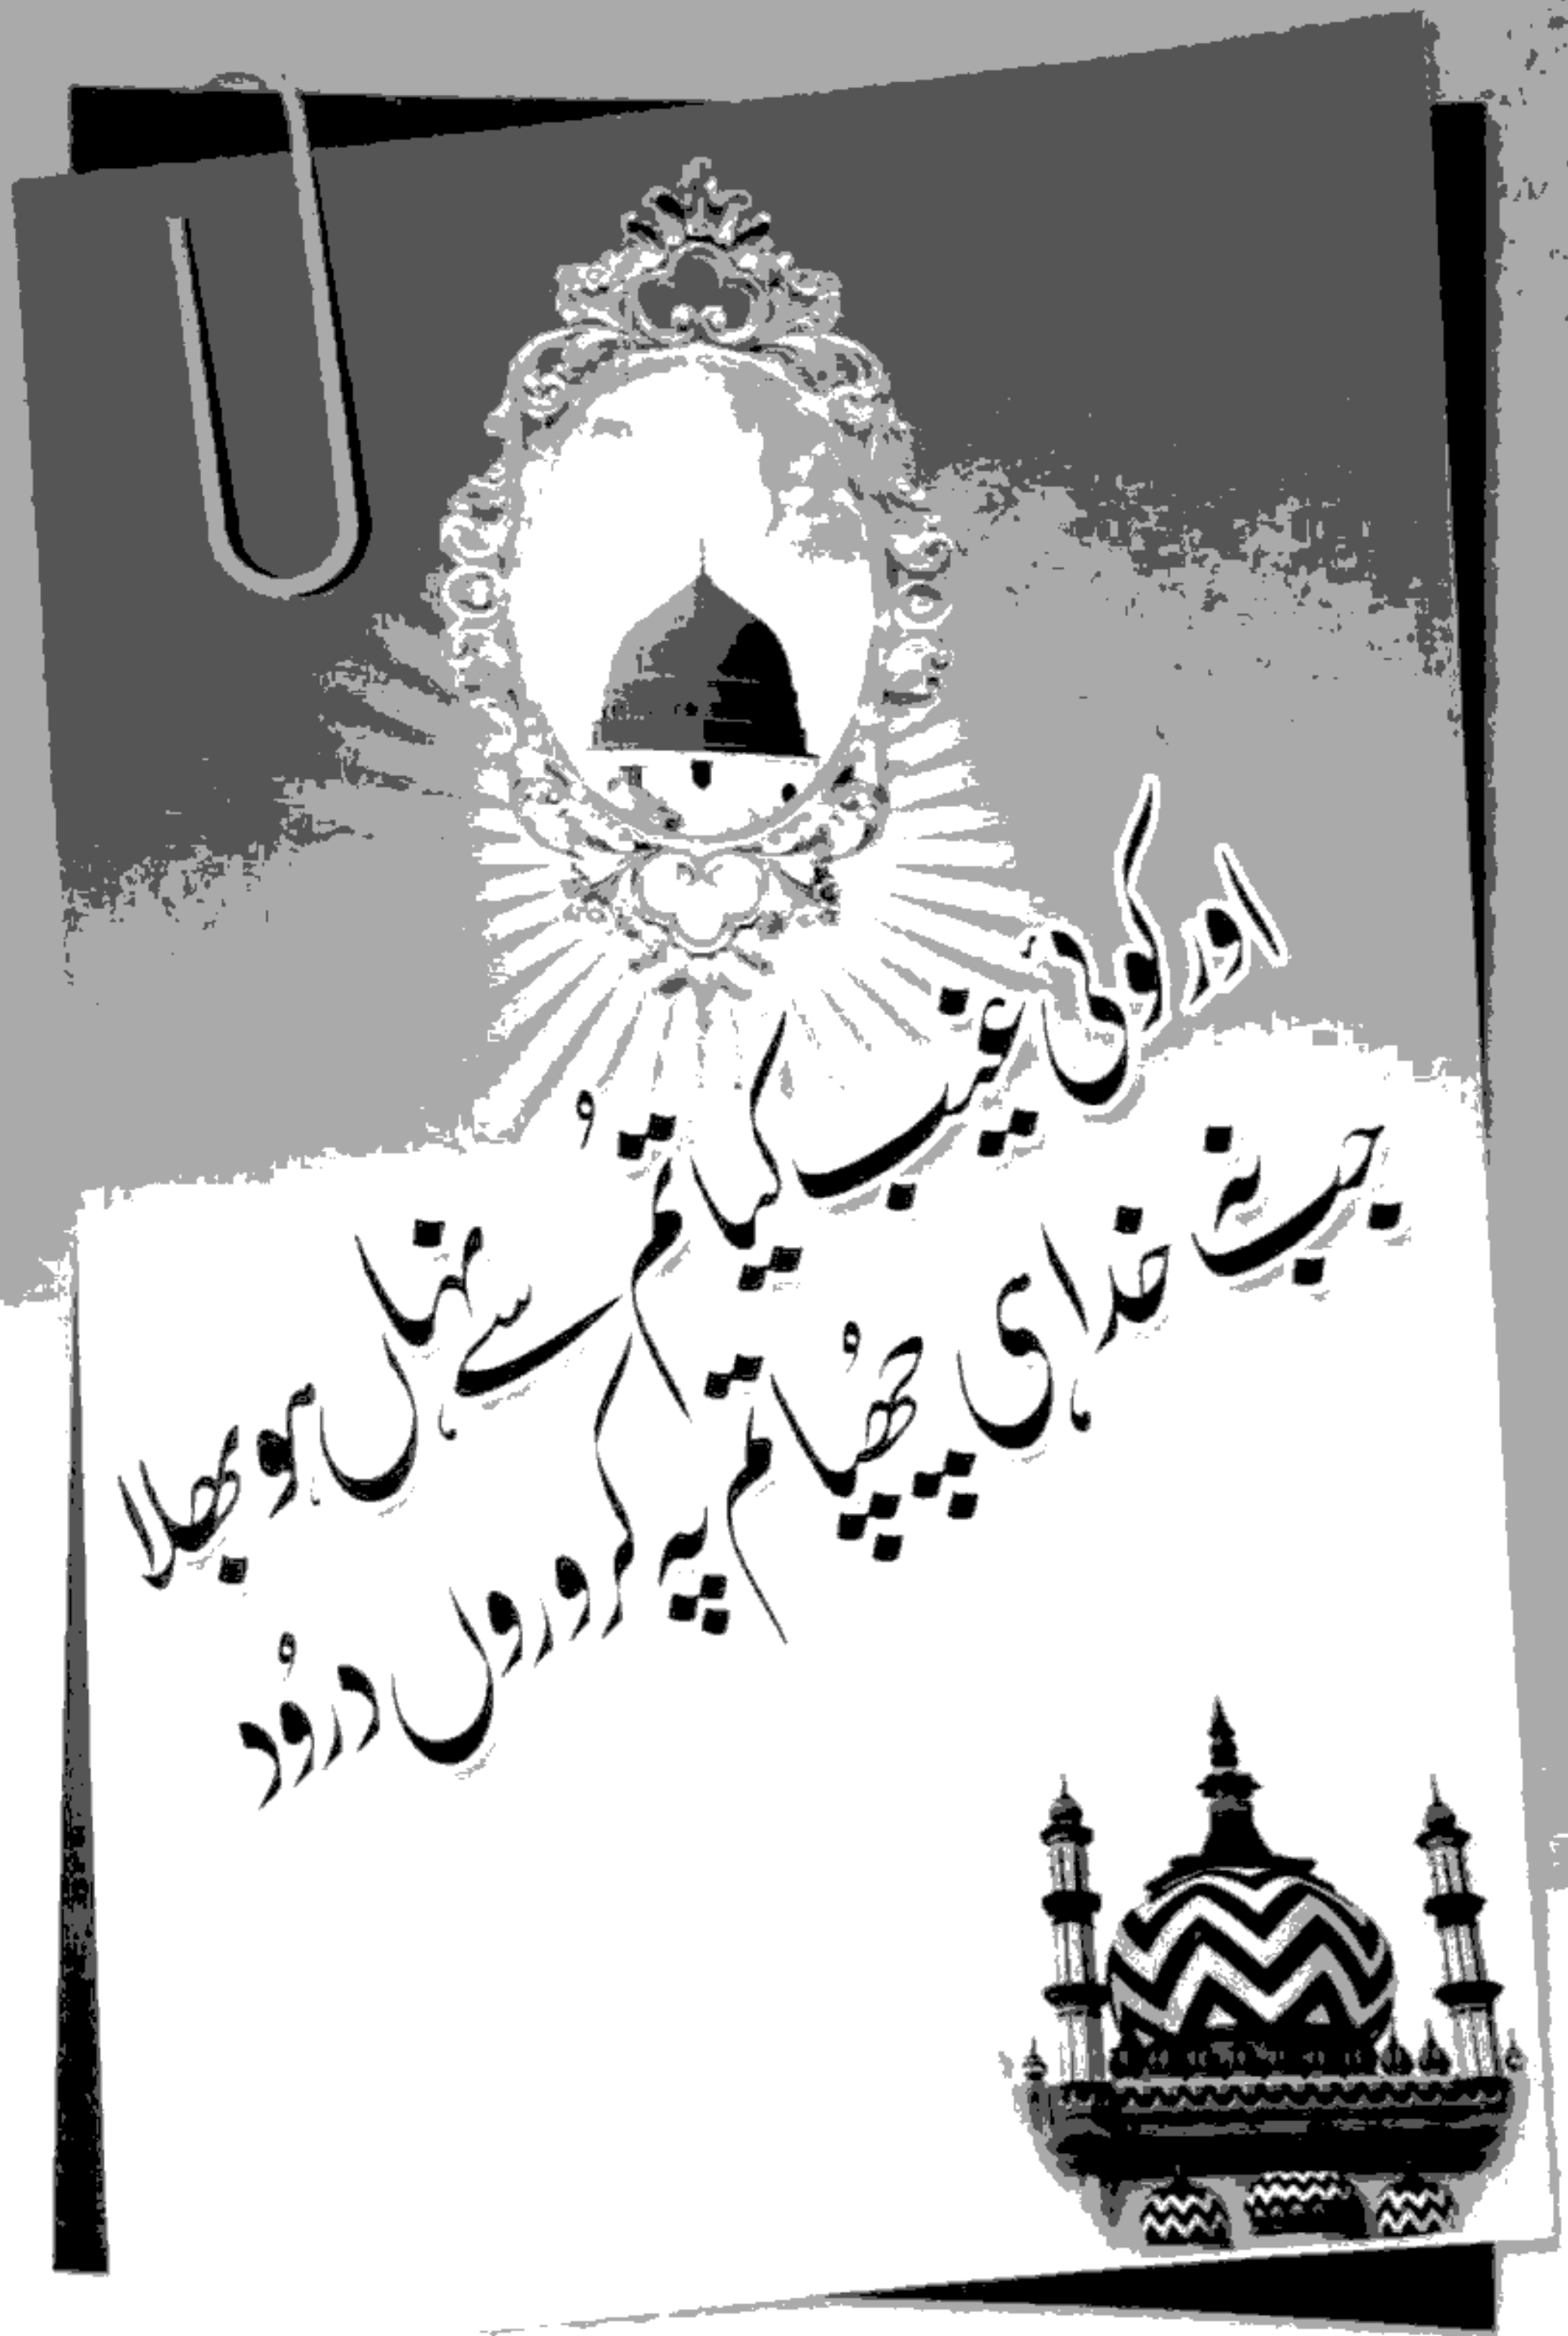 اور کوئی غیب کیا تم سے نہاں ہو بھلا
جب نہ خدا ہی چھپا تم پہ کروروں درُود